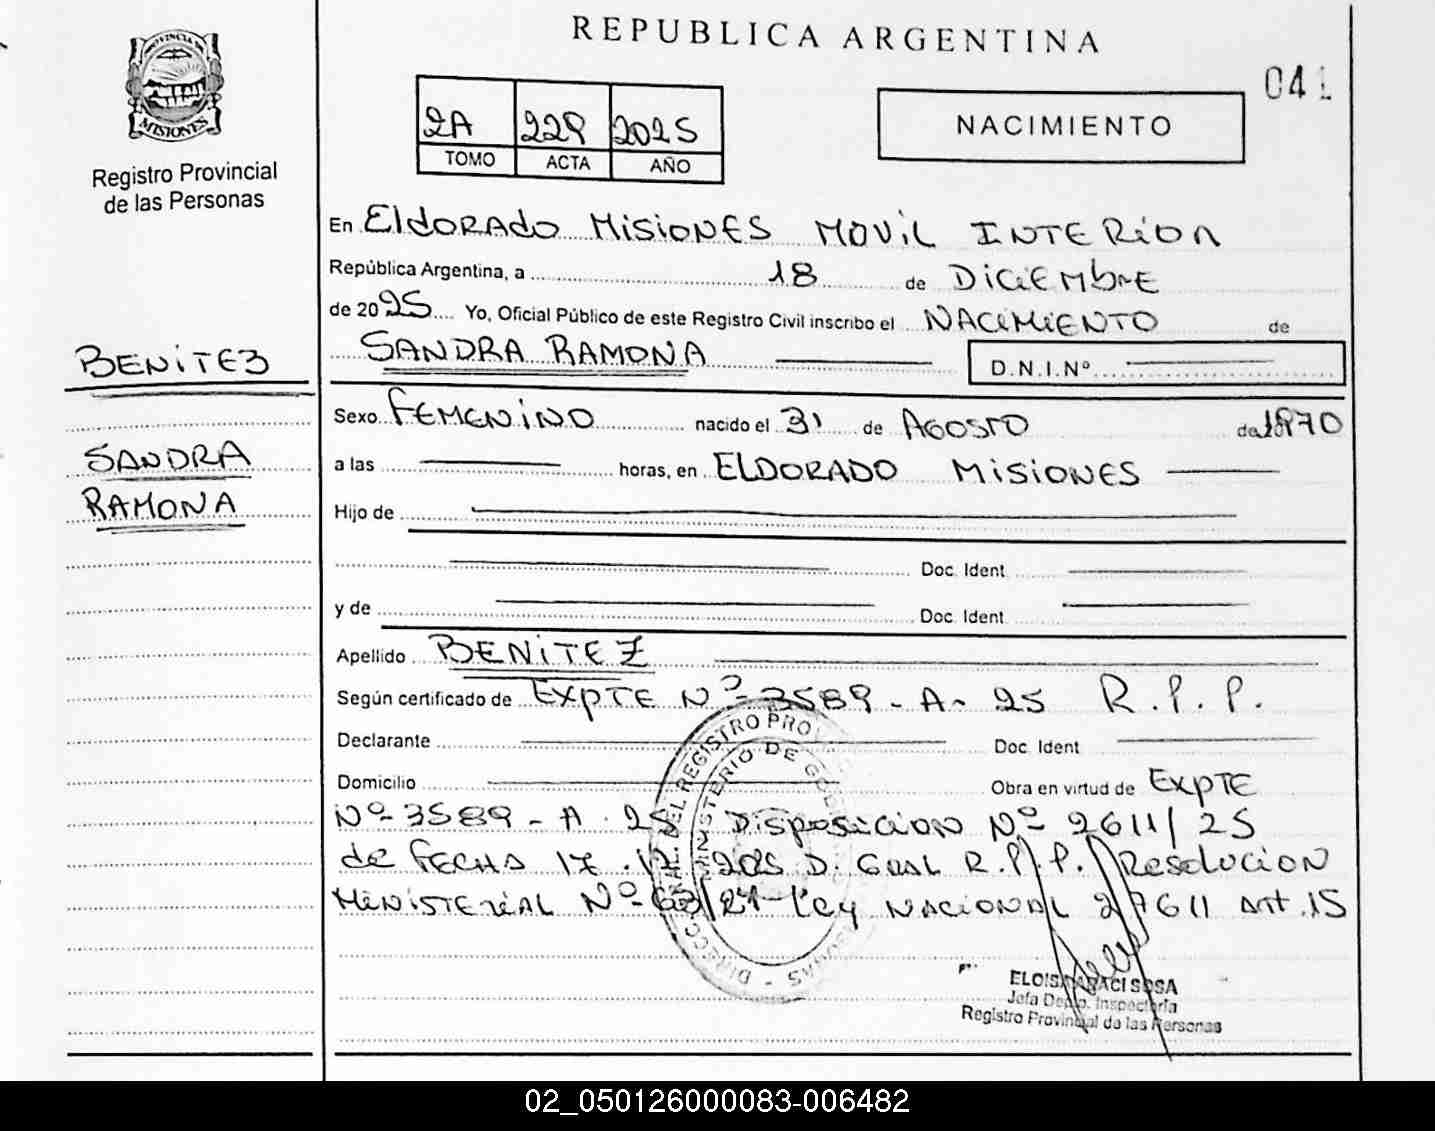 REPUBLICA ARGENTINA
041
PROVINCIA DE
MISIONES
Registro Provincial
de las Personas
2A 229 2025
TOMO ACTA AÑO
NACIMIENTO
En ElDORADO MisiONES MOVIL INTERIOR
República Argentina, a 18 de DICIEMbrE
de 2025 Yo, Oficial Público de este Registro Civil inscribo el NACIMIENTO de
SANDRA RAMONA D.N.I.Nº
BENITEZ
SANDRA
RAMONA
Sexo FEMENINO nacido el 31 de AGOSTO de 1970
a las horas, en ELDORADO MISIONES
Hijo de
Doc. Ident.
y de Doc. Ident.
Apellido BENITEZ
Según certificado de EXPTE Nº 3589-A-25 R.P.P.
Declarante Doc. Ident
Domicilio Obra en virtud de EXPTE
Nº 3589-A-25 Disposicion Nº 2611/25
de FECHA 17.12.2025 D. GRAL R.P.P. Resolucion
MINISTERIAL Nº 63/21 Ley NACIONAL 27611 Art.15
DIRECC. GRAL. DEL REGISTRO PROV
MINISTERIO DE GOB
ELOISA ARACI SOSA
Jefa Depto. Inspectoría
Registro Provincial de las Personas
02_050126000083-006482